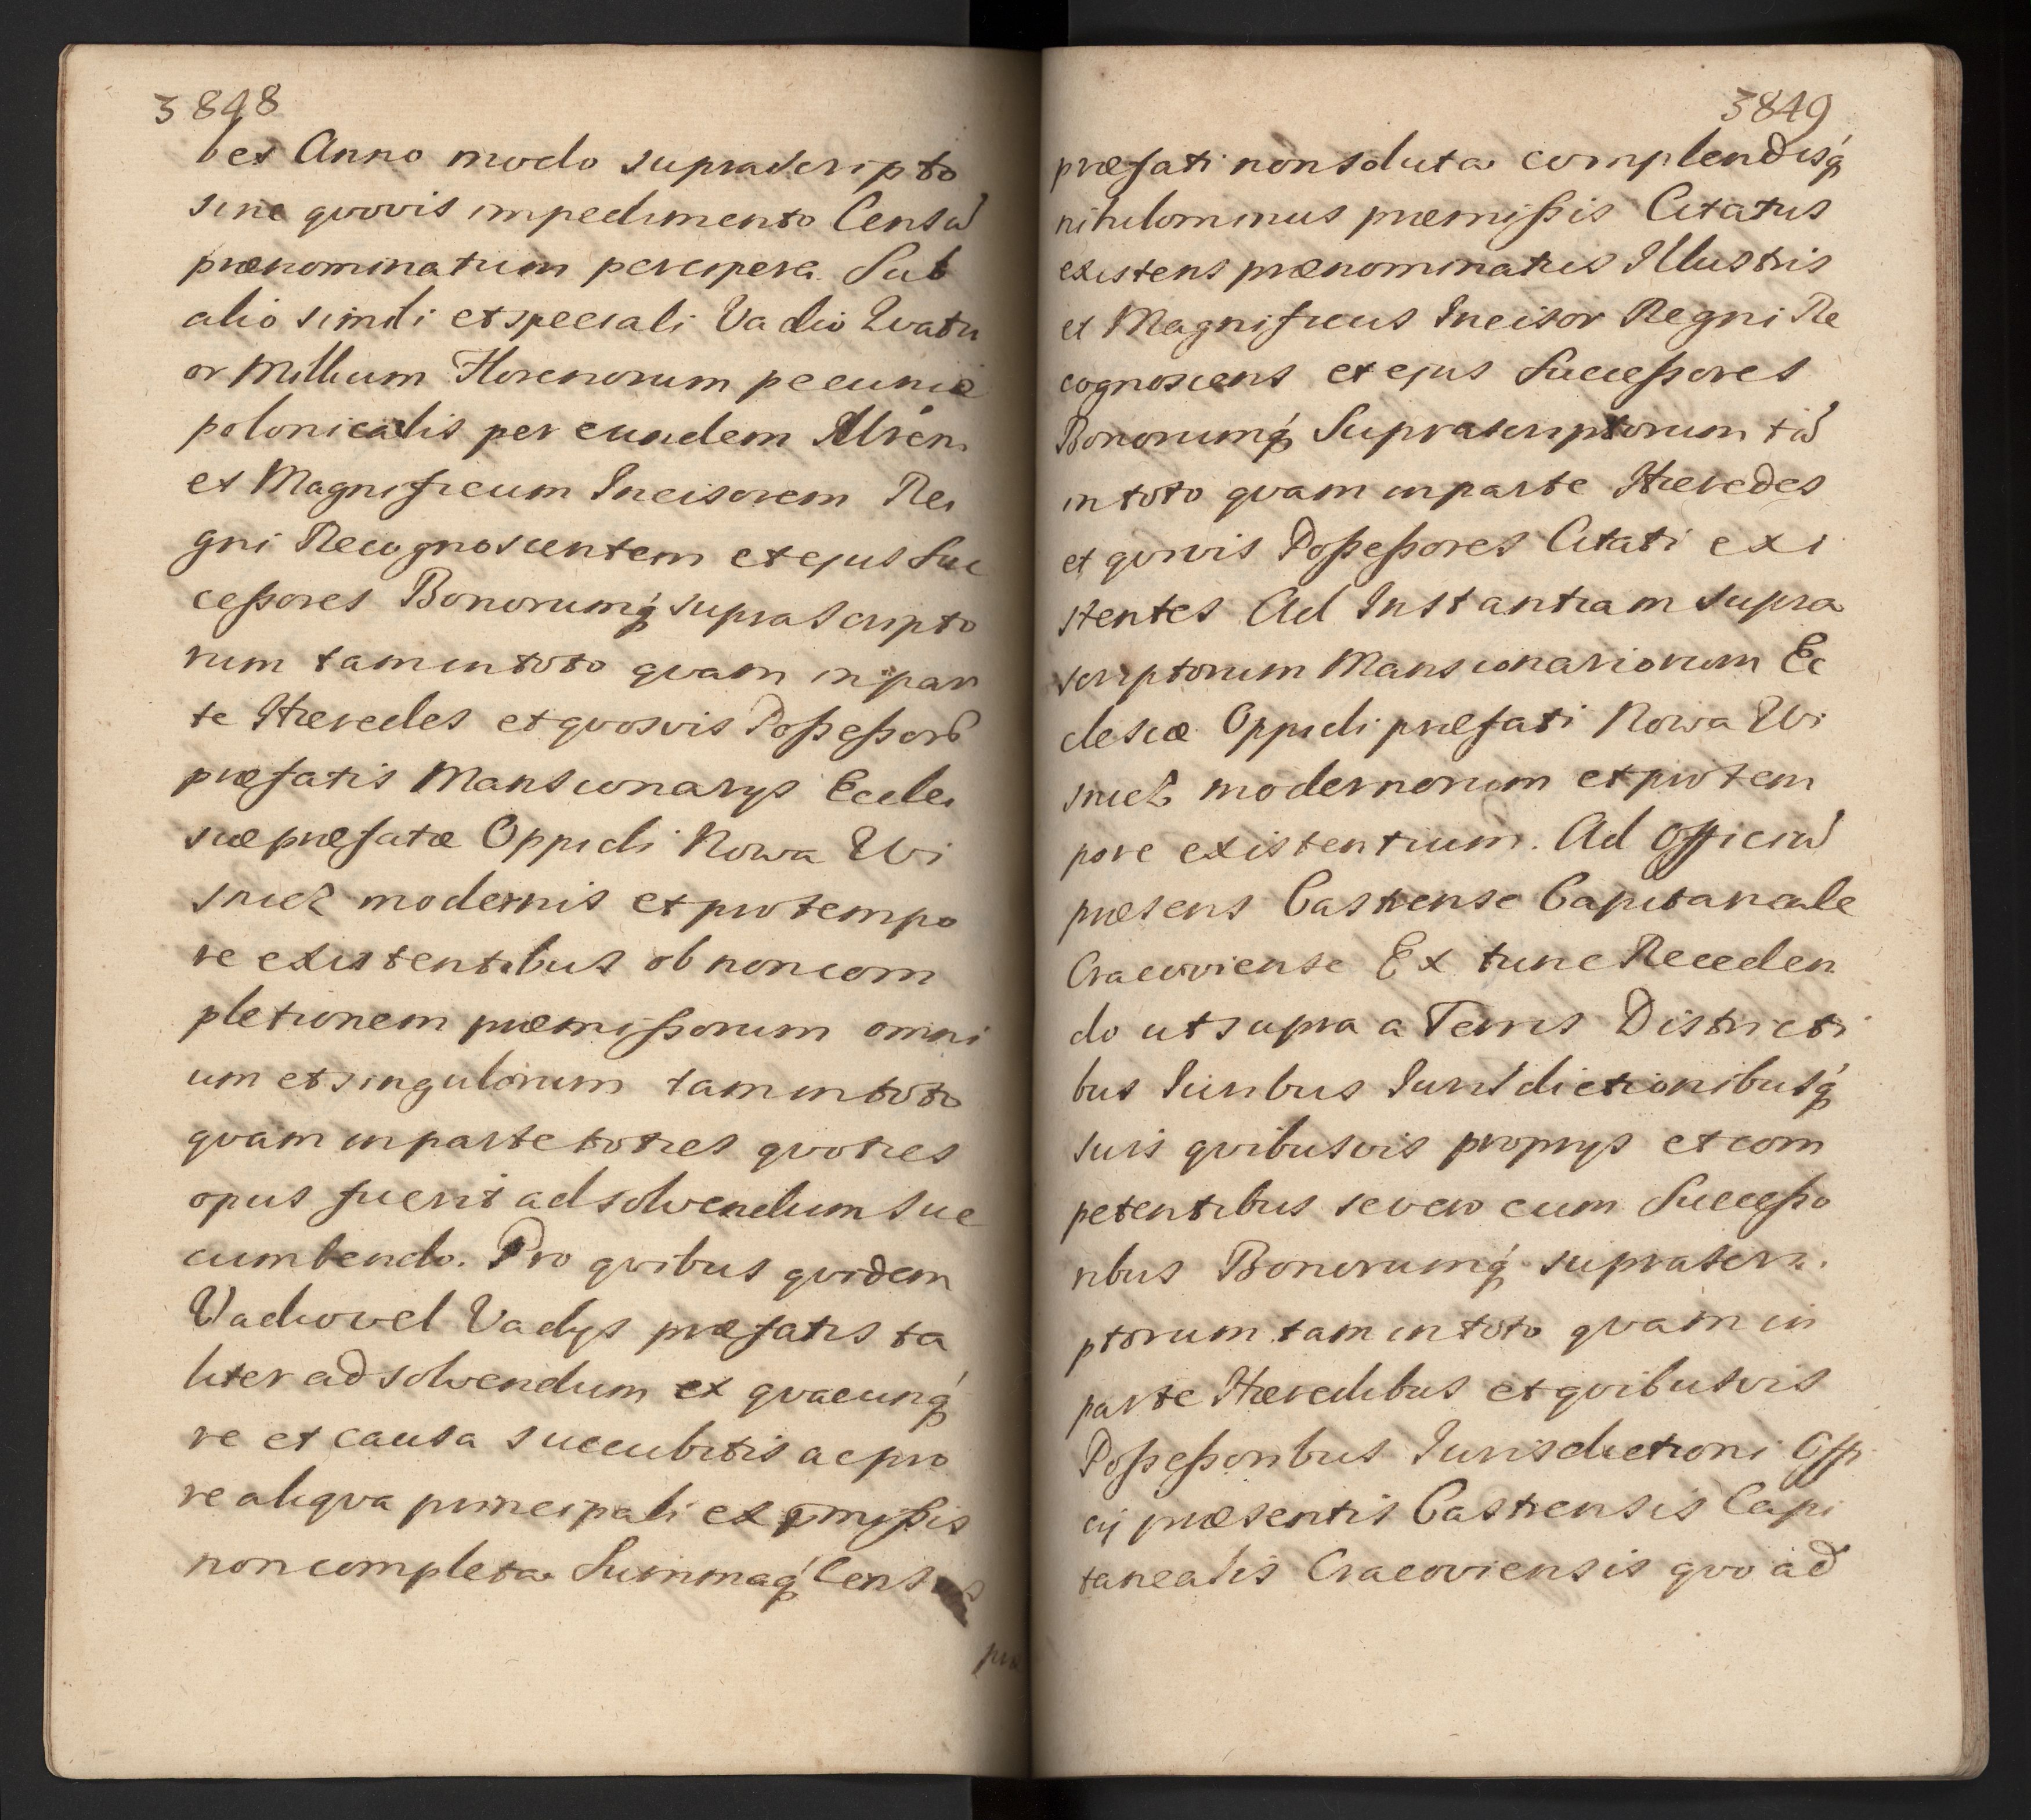 3848
bet Anno modo suprascripto
sine quovis impedimento Censũ
prænominatum percipere. Sub
alio simili et speciali Vadio Quatu
or Millium Florenorum pecuniæ
polonicalis per eundem Illrem
et Magnificum Incisorem Re
gni Recognoscentem et ejus Suc
ceßores Bonorumq́ supra scripto
rum tam in toto qvam in par
te Hæredes et qvosvis Poßeßores
præfatis Mansionarys Eccle
siæ præfatæ Oppidi Nowa Wi
snicz modernis et pro tempo
re existentibus ob non com
pletionem præmißorum omni
um et singulorum tam in toto
qvam in parte toties qvoties
opus fuerit ad solvendum suc
cumbendo. Pro qvibus qvidem
Vadio vel Vadys præfatis ta
liter ad solvendum ex qvacunq́
re et causa succubitis ac pro
re aliqva principali ex pmißis
non completa Summaq́ Census
præ
3849
præfati non soluta complendisq́
nihilominus præmißis Citatus
existens prænominatus Illustris
et Magnificus Incisor Regni Re
cognoscens et ejus Succeßores
Bonorumq́ Suprascriptorum tã
in toto qvam in parte Hæredes
et qvivis Poßeßores Citati exi
stentes Ad Instantiam supra
scriptorum Mansionariorum Ec
clesiæ Oppidi præfati Nowa Wi
snicz modernorum et pro tem
pore existentium. Ad Officiũ
præsens Castrense Capitaneale
Cracoviense Ex tunc Receden
do ut supra a Terris Districti
bus Iuribus Iurisdictionibusq́
suis qvibusvis proprys et com
petentibus se vero cum Succeßo
ribus Bonorumq́ suprascri.
ptorum tam in toto qvam in
parte Hæredibus et qvibusvis
Poßeßoribus Iurisdictioni Offi
cij præsentis Castrensis Capi
tanealis Cracoviensis qvo ad